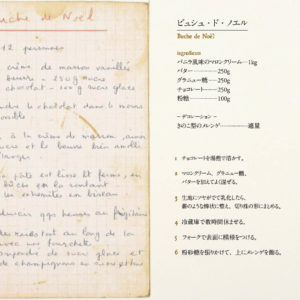 che de Noël
12 personnes
crème de marron vanillée
beurre - 250 g sucre
chocolat - 100 g sucre glace
le chocolat dans le moins
à la crème de marron,
sucre et le beurre bien
pâte est lisse et ferme, en
bûche en la roulant
les extrémités en biseau
heures au frigidaire
au long de la
avec une fourchette
de sucre glace et
de champignons en
ビュシュ・ド・ノエル
Buche de Noël
ingredients
バニラ風味のマロンクリーム…1kg
バター…250g
グラニュー糖…250g
チョコレート…350g
粉糖…100g
～デコレーション～
きのこ型のメレンゲ…適量
1 チョコレートを湯煎で溶かす。
2 マロンクリーム、グラニュー糖、
バターを加えてよく混ぜる。
3 生地にツヤがでて乳化したら、
薪のような棒状に整え、切り株の形にまとめる。
4 冷蔵庫で数時間休ませる。
5 フォークで表面に模様をつける。
6 粉砂糖を振りかけて、上にメレンゲを飾る。